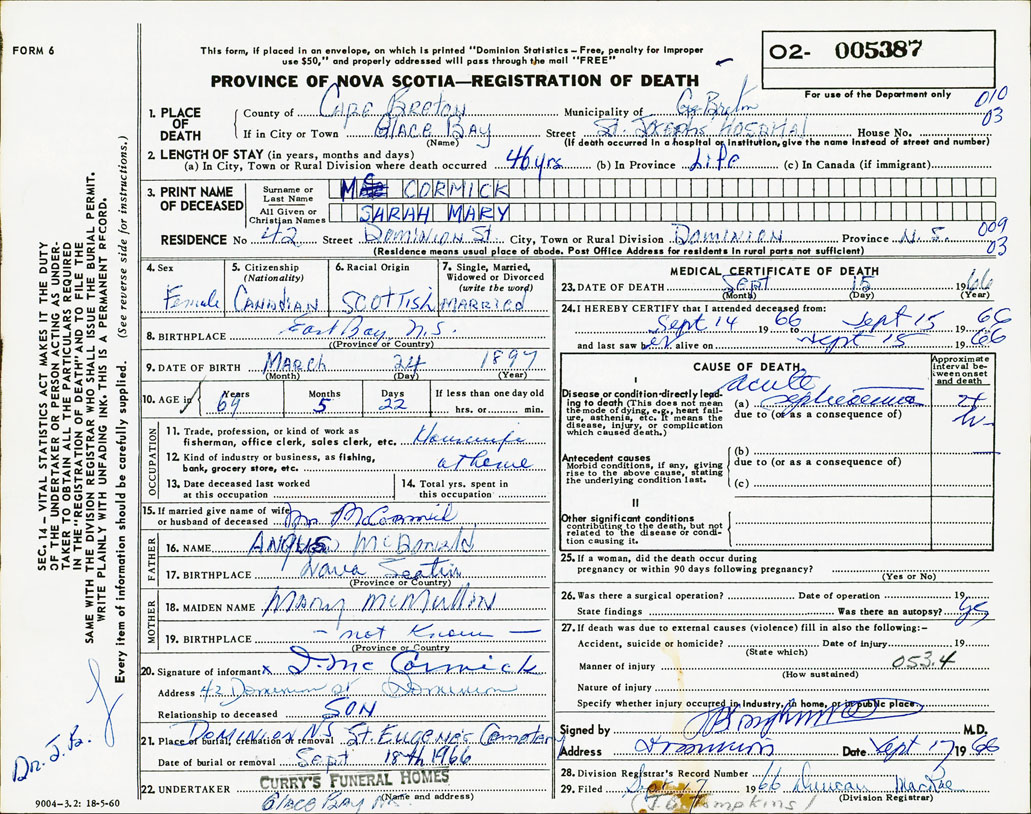 FORM 6
This form, if placed in an envelope, on which is printed "Dominion Statistics – Free, penalty for improper
use $50," and properly addressed will pass through the mail "FREE"
PROVINCE OF NOVA SCOTIA—REGISTRATION OF DEATH
O2- 005387
For use of the Department only
010
03
1. PLACE OF DEATH
County of Cape Breton Municipality of Cape Breton
If in City or Town Glace Bay Street St. Josephs Hospital House No.
(Name) (If death occurred in a hospital or institution, give the name instead of street and number)
2. LENGTH OF STAY (in years, months and days)
(a) In City, Town or Rural Division where death occurred 46 yrs (b) In Province Life (c) In Canada (if immigrant)
3. PRINT NAME OF DECEASED
Surname or Last Name McCORMICK
All Given or Christian Names SARAH MARY
RESIDENCE No 42 Street Dominion St. City, Town or Rural Division DOMINION Province N.S.
009
03
(Residence means usual place of abode. Post Office Address for residents in rural parts not sufficient)
4. Sex Female
5. Citizenship (Nationality) Canadian
6. Racial Origin Scottish
7. Single, Married, Widowed or Divorced (write the word) Married
8. BIRTHPLACE East Bay, N.S.
(Province or Country)
9. DATE OF BIRTH March 24 1897
(Month) (Day) (Year)
10. AGE in Years 69 Months 5 Days 22 If less than one day old hrs. or min.
OCCUPATION
11. Trade, profession, or kind of work as
fisherman, office clerk, sales clerk, etc. Housewife
12. Kind of industry or business, as fishing,
bank, grocery store, etc. at home
13. Date deceased last worked
at this occupation
14. Total yrs. spent in
this occupation
15. If married give name of wife
or husband of deceased McCormick
FATHER
16. NAME ANGUS McDonald
17. BIRTHPLACE Nova Scotia
(Province or Country)
MOTHER
18. MAIDEN NAME Mary McMullin
19. BIRTHPLACE – not Known –
Province or Country
20. Signature of informant x J. McCormick
Address 42 Dominion st Dominion
Relationship to deceased SON
21. Place of burial, cremation or removal Dominion NS St. Eugenes Cemetary
Date of burial or removal Sept 18th 1966
22. UNDERTAKER CURRY'S FUNERAL HOMES
(Name and address)
Glace Bay N.S.
9004-3.2: 18-5-60
SEC. 14 – VITAL STATISTICS ACT MAKES IT THE DUTY
OF THE UNDERTAKER OR PERSON ACTING AS UNDER-
TAKER TO OBTAIN ALL THE PARTICULARS REQUIRED
IN THE "REGISTRATION OF DEATH" AND TO FILE THE
SAME WITH THE DIVISION REGISTRAR WHO SHALL ISSUE THE BURIAL PERMIT.
WRITE PLAINLY WITH UNFADING INK. THIS IS A PERMANENT RECORD.
Every item of information should be carefully supplied. (See reverse side for instructions.)
MEDICAL CERTIFICATE OF DEATH
23. DATE OF DEATH SEPT 15 1966
(Month) (Day) (Year)
24. I HEREBY CERTIFY that I attended deceased from:
Sept 14 1966 to Sept 15 1966
and last saw her alive on Sept 15 1966
CAUSE OF DEATH
Approximate interval between onset and death
I
Disease or condition directly leading to death (This does not mean the mode of dying, e.g., heart failure, asthenia, etc. It means the disease, injury, or complication which caused death.)
acute
(a) septicaemia
due to (or as a consequence of)
Antecedent causes
Morbid conditions, if any, giving rise to the above cause, stating the underlying condition last.
(b)
due to (or as a consequence of)
(c)
II
Other significant conditions
contributing to the death, but not related to the disease or condition causing it.
25. If a woman, did the death occur during
pregnancy or within 90 days following pregnancy?
(Yes or No)
26. Was there a surgical operation? Date of operation 19
State findings Was there an autopsy? Yes
27. If death was due to external causes (violence) fill in also the following:–
Accident, suicide or homicide? Date of injury 19
(State which)
Manner of injury 053.4
(How sustained)
Nature of injury
Specify whether injury occurred in industry, in home, or in public place
Signed by M.D,
Address Dominion Date Sept 17 1966
28. Division Registrar's Record Number
29. Filed Sept 17 1966 Duncan MacRae
(Division Registrar)
(J. G. Tompkins)